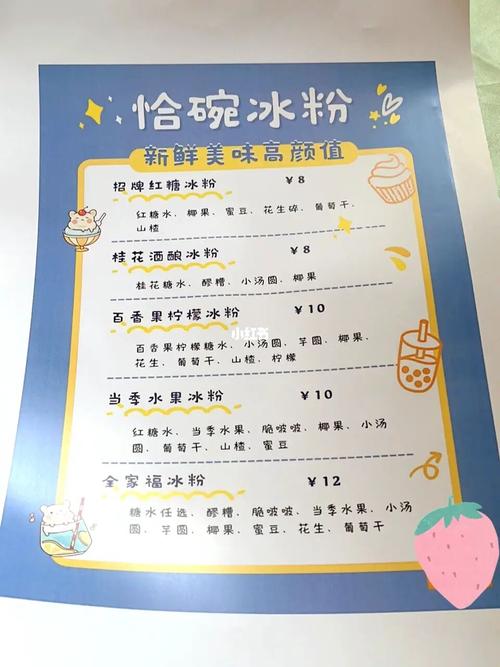 恰碗冰粉
新鲜美味高颜值
招牌红糖冰粉 ¥8
红糖水、椰果、蜜豆、花生碎、葡萄干、
山楂
桂花酒酿冰粉 ¥8
桂花糖水、醪糟、小汤圆、椰果
百香果柠檬冰粉 ¥10
百香果柠檬糖水、小汤圆、芋圆、椰果、
花生、葡萄干、山楂、柠檬
小红书
当季水果冰粉 ¥10
红糖水、当季水果、脆啵啵、椰果、小汤
圆、葡萄干、山楂、蜜豆
全家福冰粉 ¥12
糖水任选、醪糟、脆啵啵、当季水果、小汤
圆、芋圆、椰果、蜜豆、花生、葡萄干